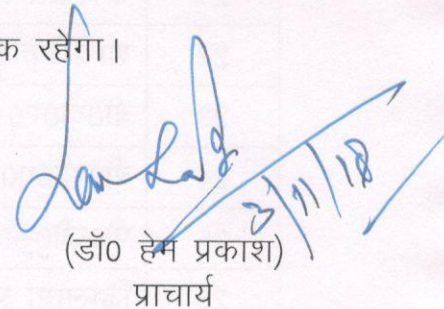 क रहेगा।
3/11/18
(डॉ0 हेम प्रकाश)
प्राचार्य